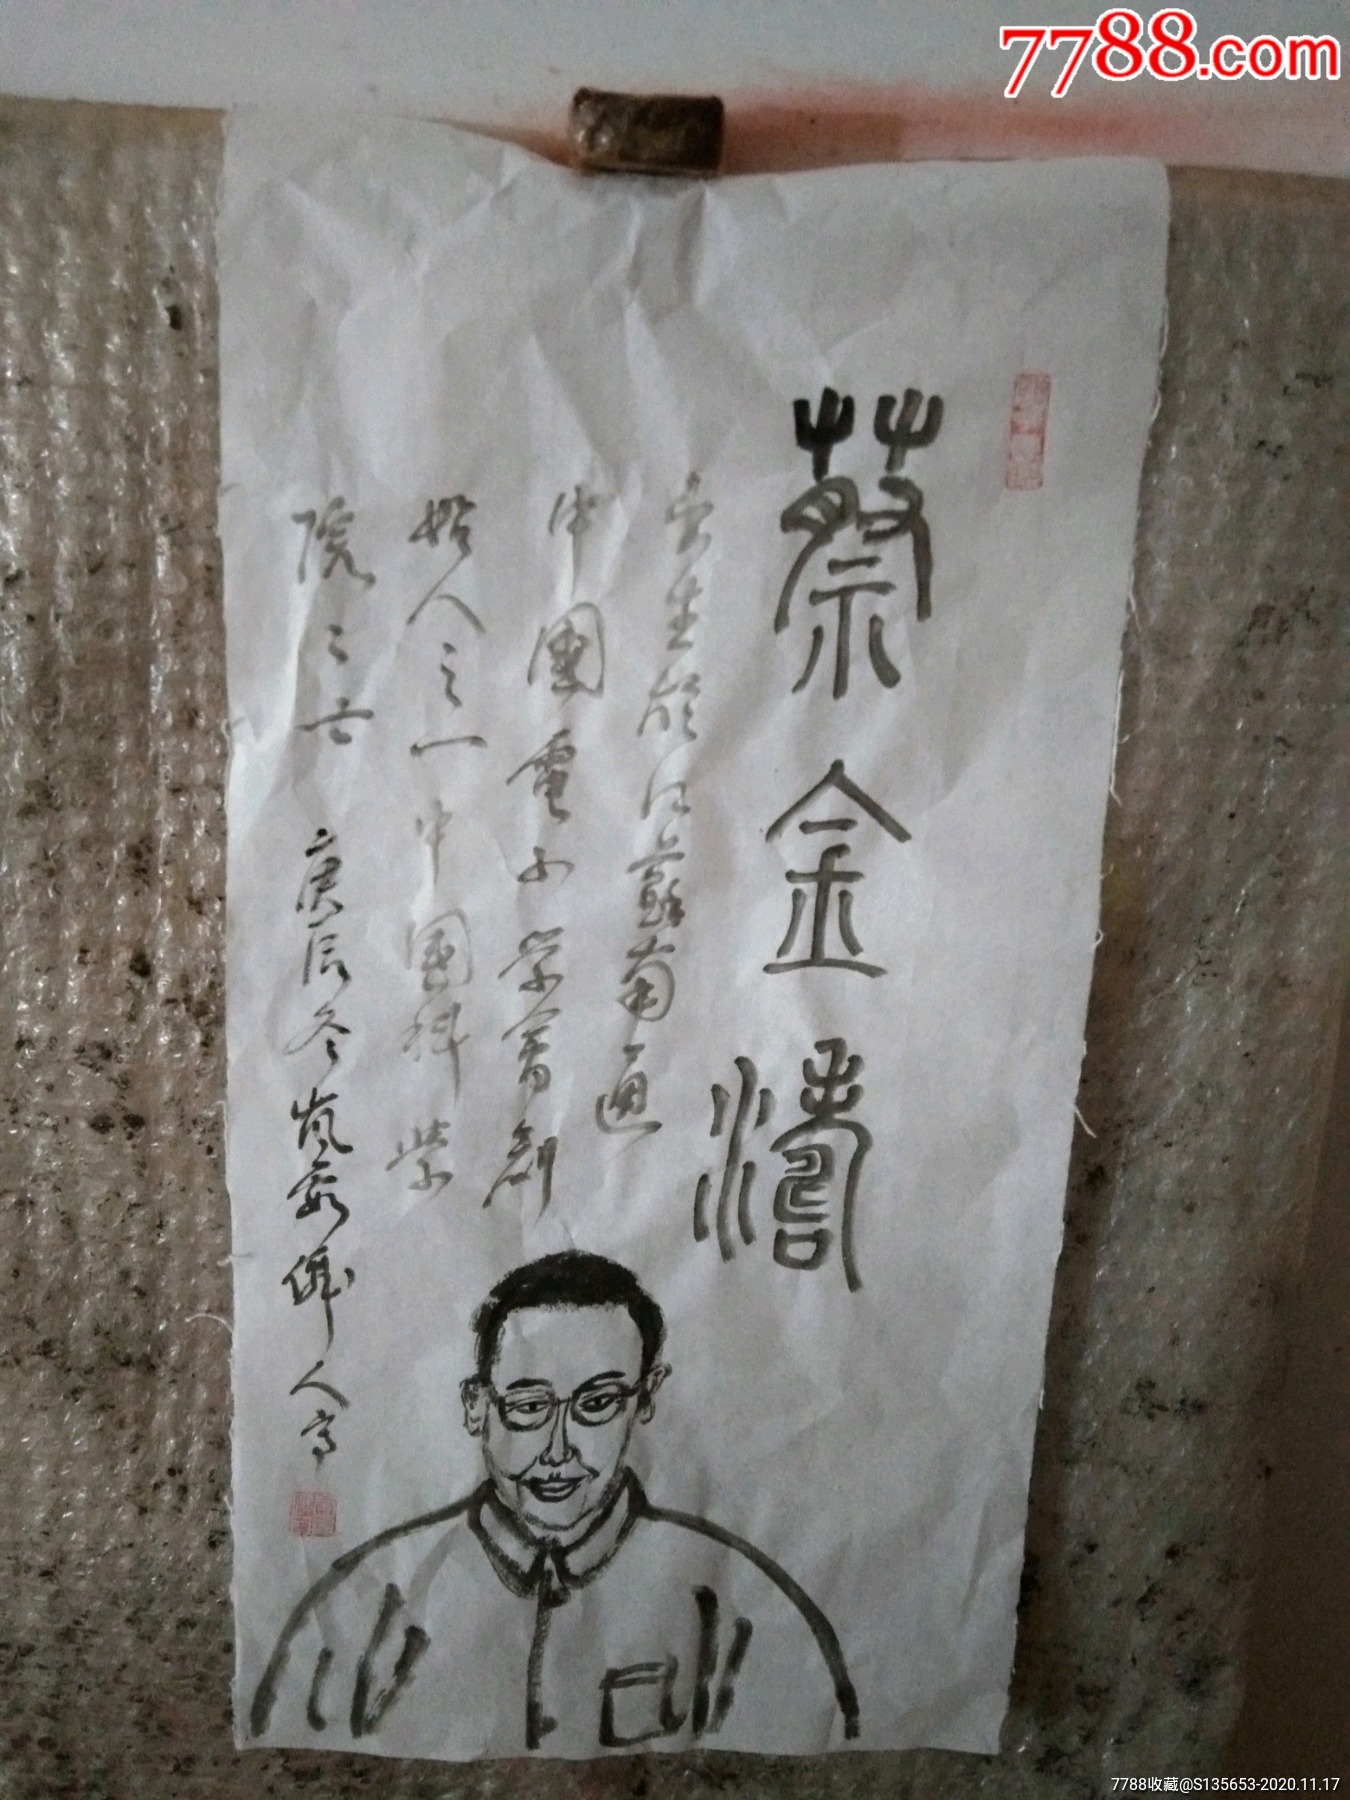 7788.com
蔡金濤
出生於江蘇南通
中國電子學會創
始人之一中國科學
院院士
庚辰冬
人 寫
7788收藏@S135653-2020.11.17